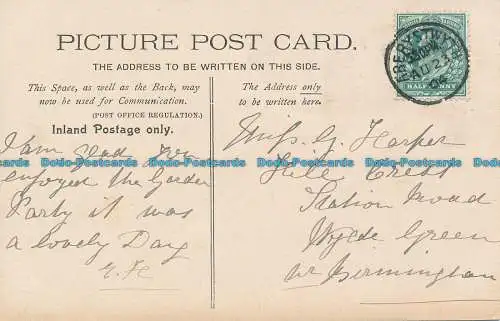 PICTURE POST CARD.
THE ADDRESS TO BE WRITTEN ON THIS SIDE.
This Space, as well as the Back, may
now be used for Communication.
(POST OFFICE REGULATION.)
Inland Postage only.
The Address only
to be written here.
HALF PENNY
I am glad you
enjoyed the Garden
Party it was
a lovely Day
Miss G. Harper
Hill Crest
Station Road
Wylde Green
Nr Birmingham
Dodo-Postcards Dodo-Postcards Dodo-Postcards Dodo-Postcards Dodo-Postcards